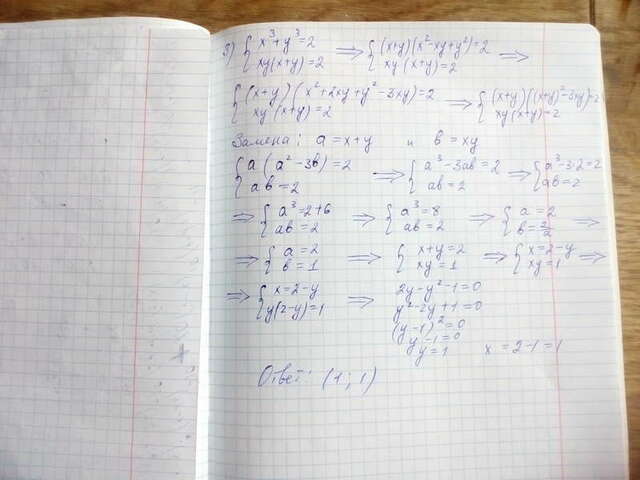 5) { x³+y³=2 xy(x+y)=2 ⇒ { (x+y)(x²-xy+y²)=2 xy(x+y)=2 ⇒
{ (x+y)(x²+2xy+y²-3xy)=2 xy(x+y)=2 ⇒ { (x+y)((x+y)²-3xy)=2 xy(x+y)=2
Замена: a=x+y и b=xy
{ a(a²-3b)=2 ab=2 ⇒ { a³-3ab=2 ab=2 ⇒ { a³-3·2=2 ab=2
⇒ { a³=2+6 ab=2 ⇒ { a³=8 ab=2 ⇒ { a=2 b=2/2 ⇒
⇒ { a=2 b=1 ⇒ { x+y=2 xy=1 ⇒ { x=2-y xy=1 ⇒
⇒ { x=2-y y(2-y)=1 ⇒ 2y-y²-1=0
y²-2y+1=0
(y-1)²=0
y-1=0
y=1 x=2-1=1
Ответ: (1; 1)